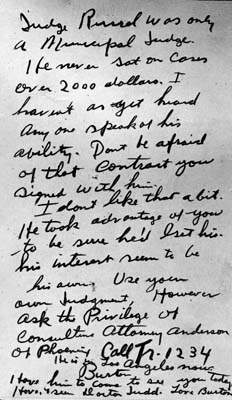 Judge Russel was only
a Municipal Judge.
He never sat on cases
over 2000 dollars. I
havent as yet heard
any one speak of his
ability. Dont be afraid
of that contract you
signed with him.
I dont like that a bit.
He took advantage of you
to be sure he'd get his.
his interest seem to be
his own. Use your
own Judgment, However
ask the Privilege of
Consulting Attorney Anderson
of Phoenix Call Tr. 1234
He is in Los Angeles now
Burton
I Have him to come to see you today
Have seen Doctor Judd. Love Burton